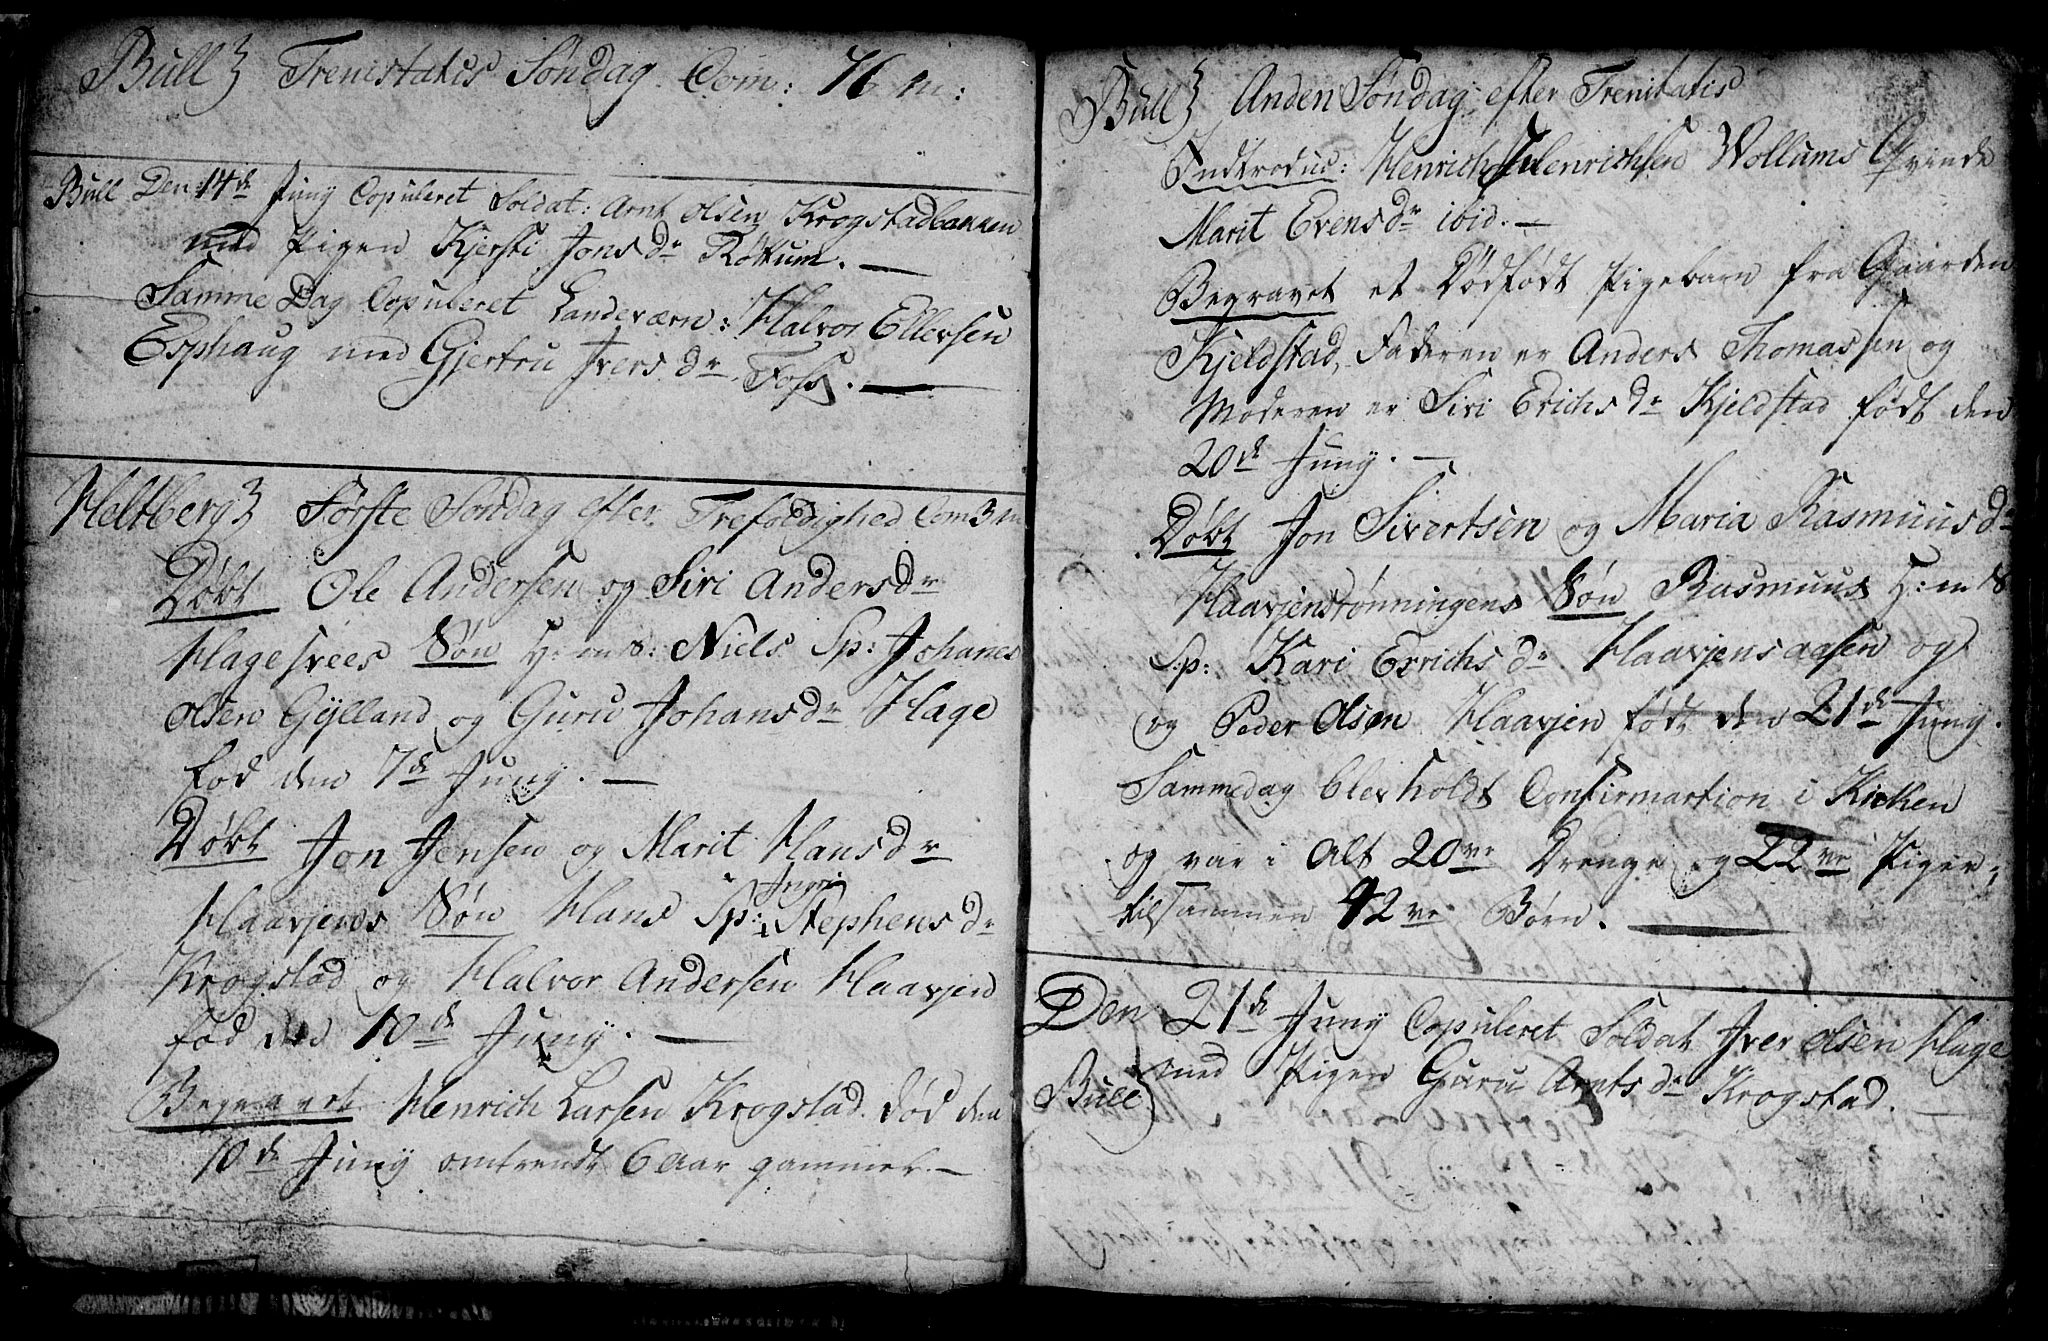 Bull Trenistatis Søndag Com: 76 m:
Bull Den 14de Juny Copuleret Soldat: Arnt Olsen Krogstadbakken
med Pigen Kjersti Jonsdr Røttum. —
Samme Dag Copuleret Landeværn: Halvor Ellevsen
Esphaug med Gjertru Iversdr Foss. —
Heltberg Første Søndag efter Trefoldighed Com 3 m
Døbt Ole Andersen og Siri Andersdr
Hagesvees Søn H: m 8: Niels Sp: Johanes
Olsen Gylland og Guru Johansdr Hage
fød den 7de Juny. —
Døbt Jon Jensen og Marit Hansdr
Haavjens Søn Hans Sp: Ingri Stephensdr
Krogstad og Halvor Andersen Haavjen
fød den 10de Juny. —
Begravet Henrich Larsen Krogstad. død den
10de Juny omtrendt 6 Aar gammel. —
Bull Anden Søndag efter Trenitatis
Indtroduc: Henrich Henrichsen Wollums Qvinde
Marit Evensdr ibid. —
Begravet et Dødfødt Pigebarn fra Gaarden
Kjeldstad, Faderen er Anders Thomassen og
Moderen er Siri Erichsdr Kjeldstad født den
20de Juny. —
Døbt Jon Sivertsen og Maria Rasmuusdr
Haavjensrønningens Søn Rasmuus H: m 8
Sp: Kari Errichsdr Haavjensaasen og
og Peder Olsen Haavjen født den 21de Juny.
Sammedag blev holdt Confirmartion i Kirken
og var i Alt 20ve Drenge og 22ve Piger,
tilsammen 42ve Børn. —
Den 21de Juny Copuleret Soldat Iver Olsen Hage
Bull med Pigen Guru Arntsdr Krogstad. —